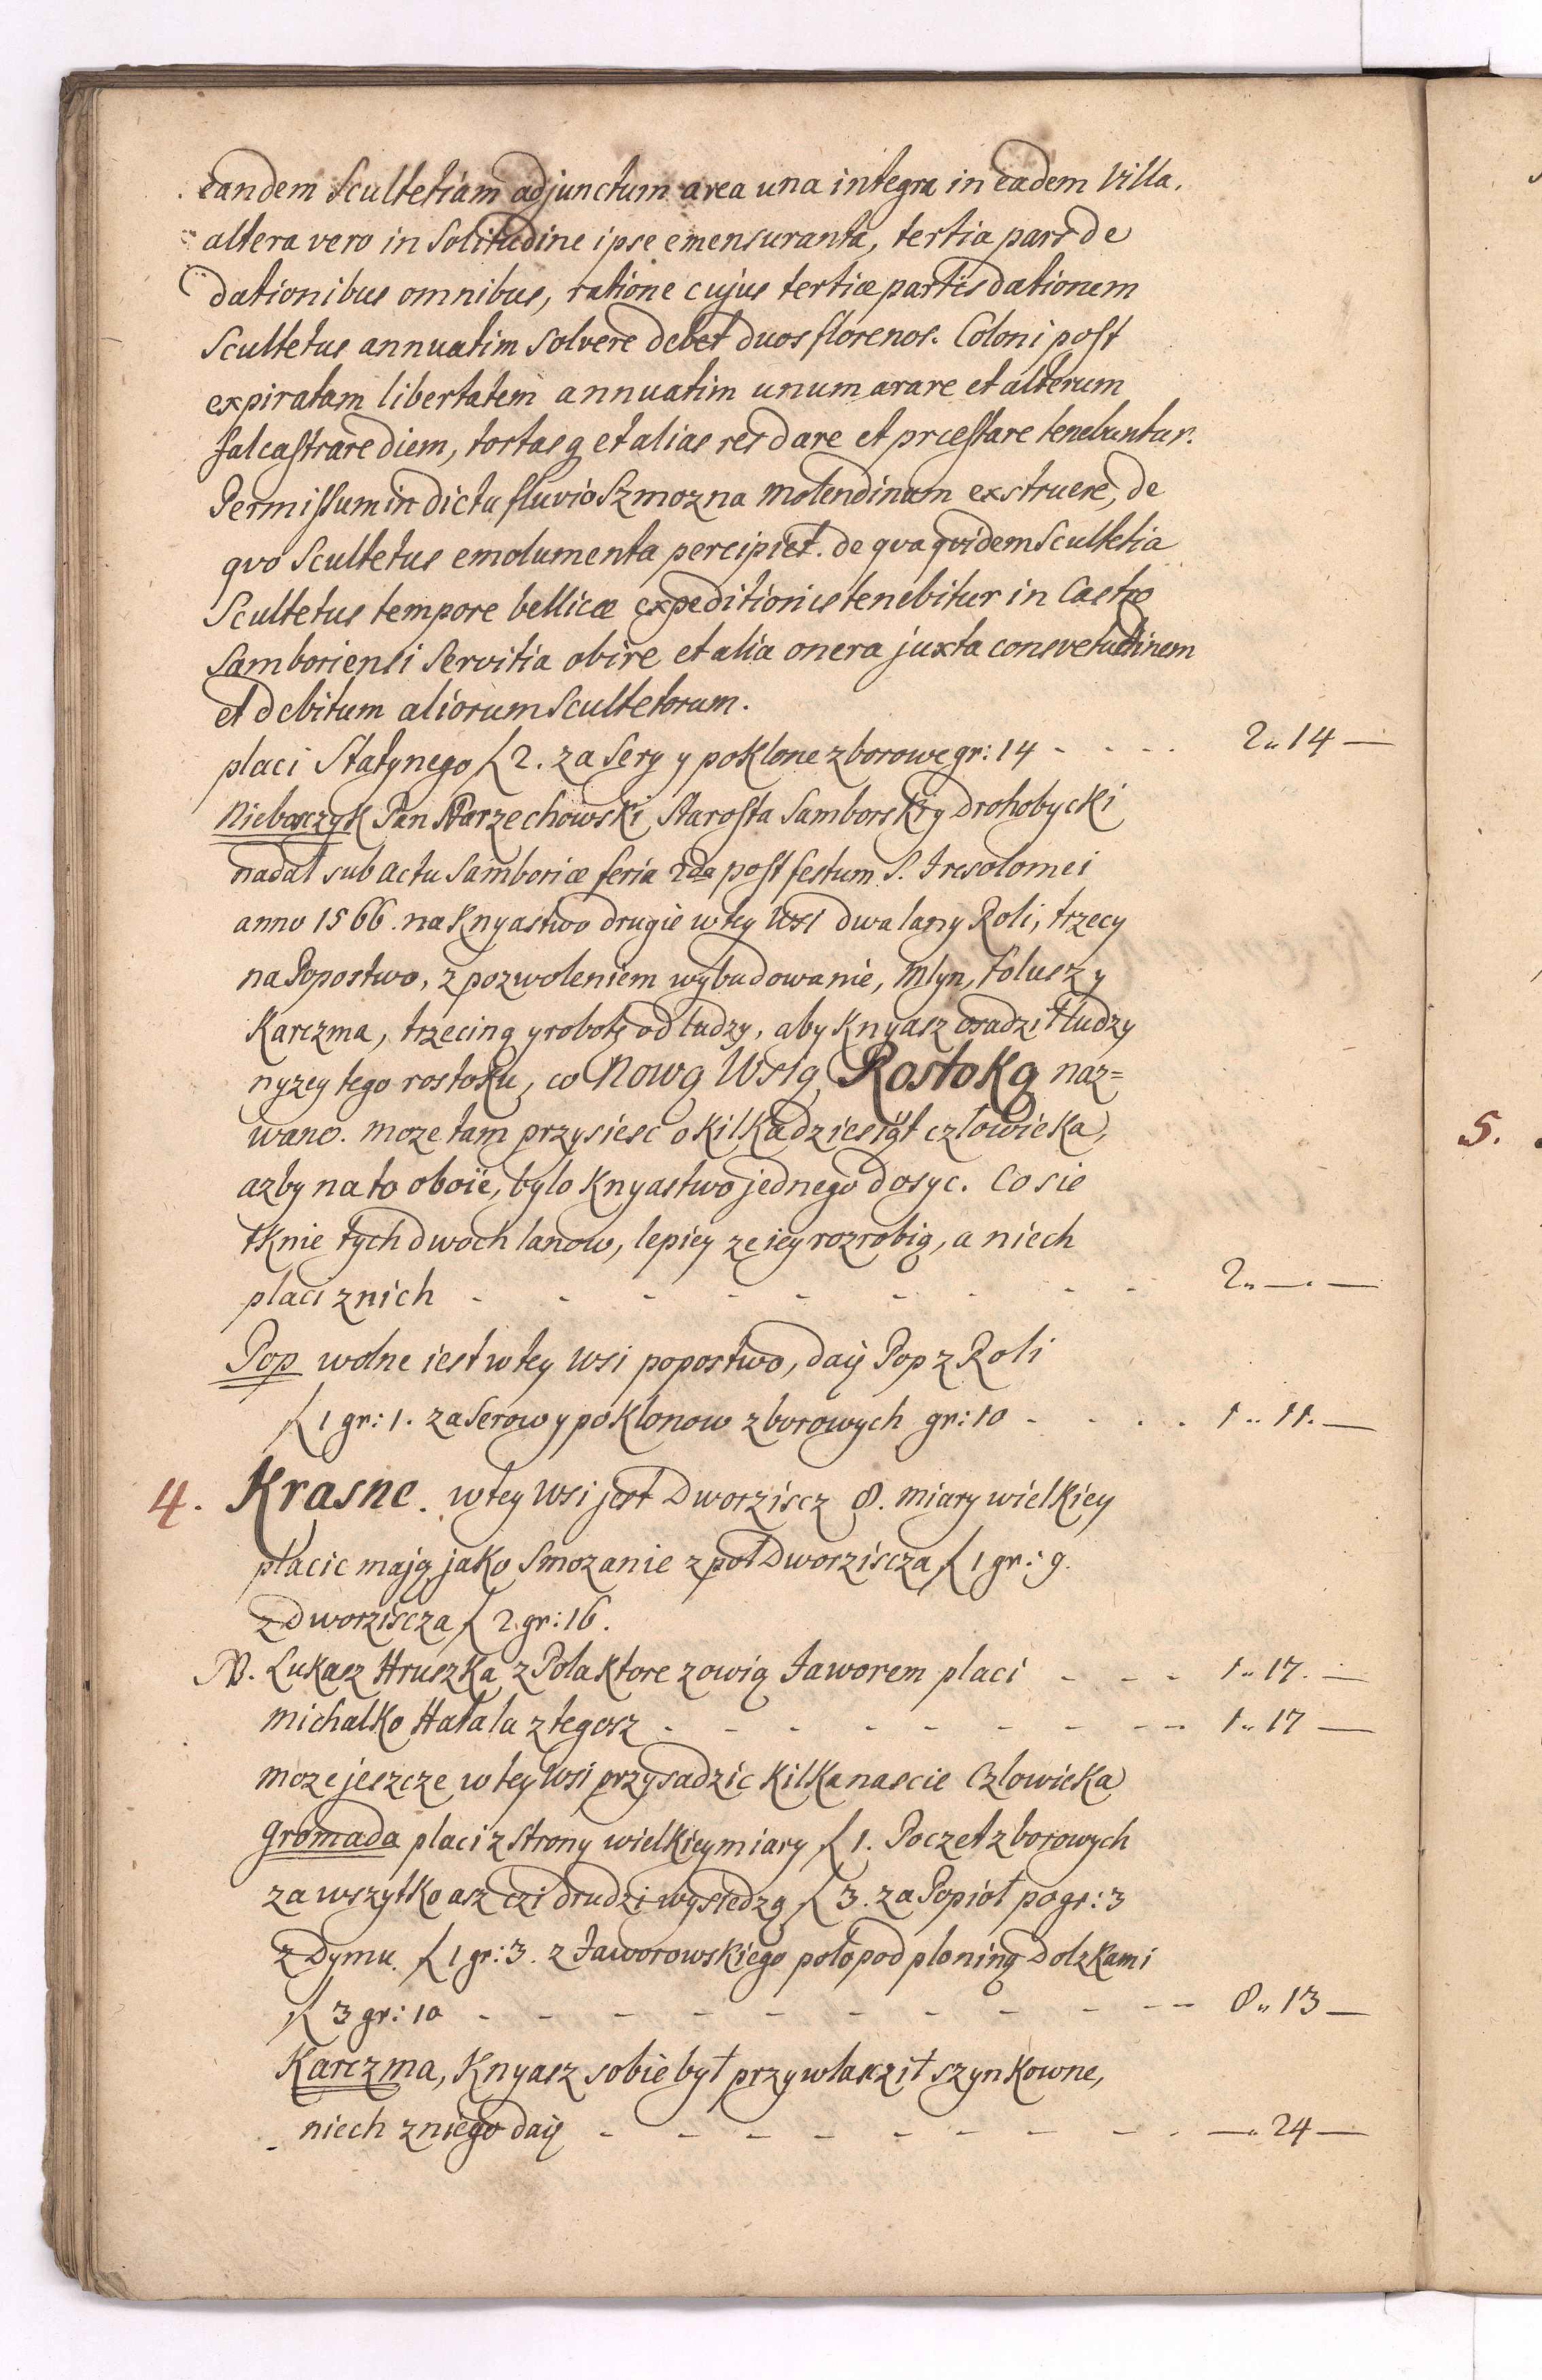 eandem Scultetiam adjunctum area una integra in eadem Villa.
altera vero in Solitudine ipse emensuranta, tertia pars de
dationibus omnibus, ratione cujus tertiæ partis dationem
Scultetus annuatim Solvere debet duos florenos. Coloni post
expiratam libertatem annuatim unum arare et alterum
falcastrare diem, tortasq et alias res dare et præstare tenebuntur.
Permissum in dictu fluvio Szmozna Molendinum exstruere, de
qvo Scultetus emolumenta percipiet. de qva qvidem Scultetia
Scultetus tempore bellicæ expeditionis tenebitur in Castro
Samboriensi Servitia obire et alia onera juxta consvetudinem
et debitum aliorum Scultetorum.
placi Statynego ƒ 2. za Sery y poklone zborowe gr: 14 - - - - 2 „ 14 —
Nieboszczyk Pan Starzechowski Starosta Samborski y Drohobycki
nadal sub actu Samboriæ feria 2da post festum S. Iresolomei
anno 1566. na Knyastwo drugie w tey Wsi dwa lany Roli, trzecy
na Popostwo, z pozwoleniem wybudowanie, Mlyn, Folusz y
Karczma, trzecinq y robotę od ludzy, aby Knyasz osadził ludzy
nyzey tego rostoku, co Nowq Wsiq Rostokq naz=
wano. moze tam przysiesc o kilkadziesiąt czlowieka,
azby na to oboïe, bylo Knyastwo jednego dosyc. Co sie
tknie tych dwoch lanow, lepiey ze iey rozrobią, a niech
placi znich - - - - - - - - - 2 „ — . —
Pop wolne iest w tey Wsi popostwo, daÿ Pop z Roli
ƒ 1 gr: 1. za Serow y poklonow zborowych gr: 10 - - - - 1 „ 11. —
4. Krasne. w tey Wsi jest Dworziscz 8. miary wielkiey
placic mają jako Smozanie z poł Dworziscza ƒ 1 gr: 9.
z Dworziscza ƒ 2. gr: 16.
NB. Lukasz Hruszka z Pola ktore zowią Jaworem placi - - - 1 „ 17. —
Michalko Hatala z tegosz - - - - - - - - - 1 „ 17 —
moze jeszcze w tey Wsi przysadzic kilkanascie Czlowieka
Gromada placi z Strony wielkiey miary ƒ 1. Poczet zborowych
za wszytko asz czi drudzi wysiedzą ƒ 3. za Popioł po gr: 3
z Dymu. ƒ 1 gr: 3. z Jaworowskiego pola pod ploniną Dolzkami
ƒ 3 gr: 10 - - - - - - - - - - 8 „ 13 —
Karczma, Knyasz sobie był przywlasził szynkowne,
niech z niego daÿ - - - - - - - - — „ 24 —
5.